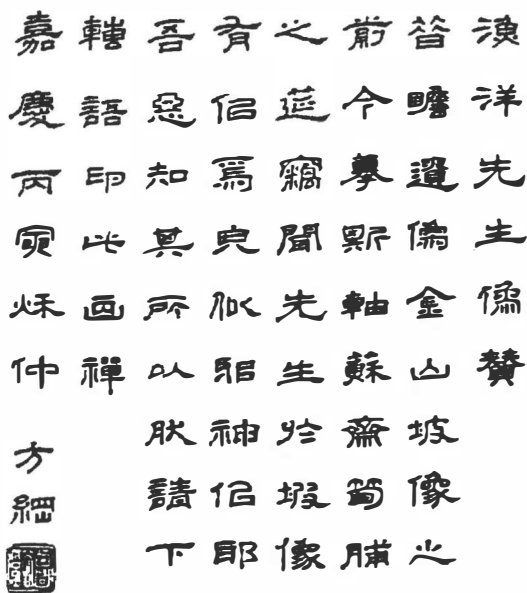 漁洋先生像贊
昔瞻遺像金山坡像之
前今摹斯軸蘇齋筍脯
之筵竊聞先生於坡像
有佀焉皃似邪神佀耶
吾惡知其所以肰請下
轉語印此画禪
嘉慶丙寅秋仲
方綱